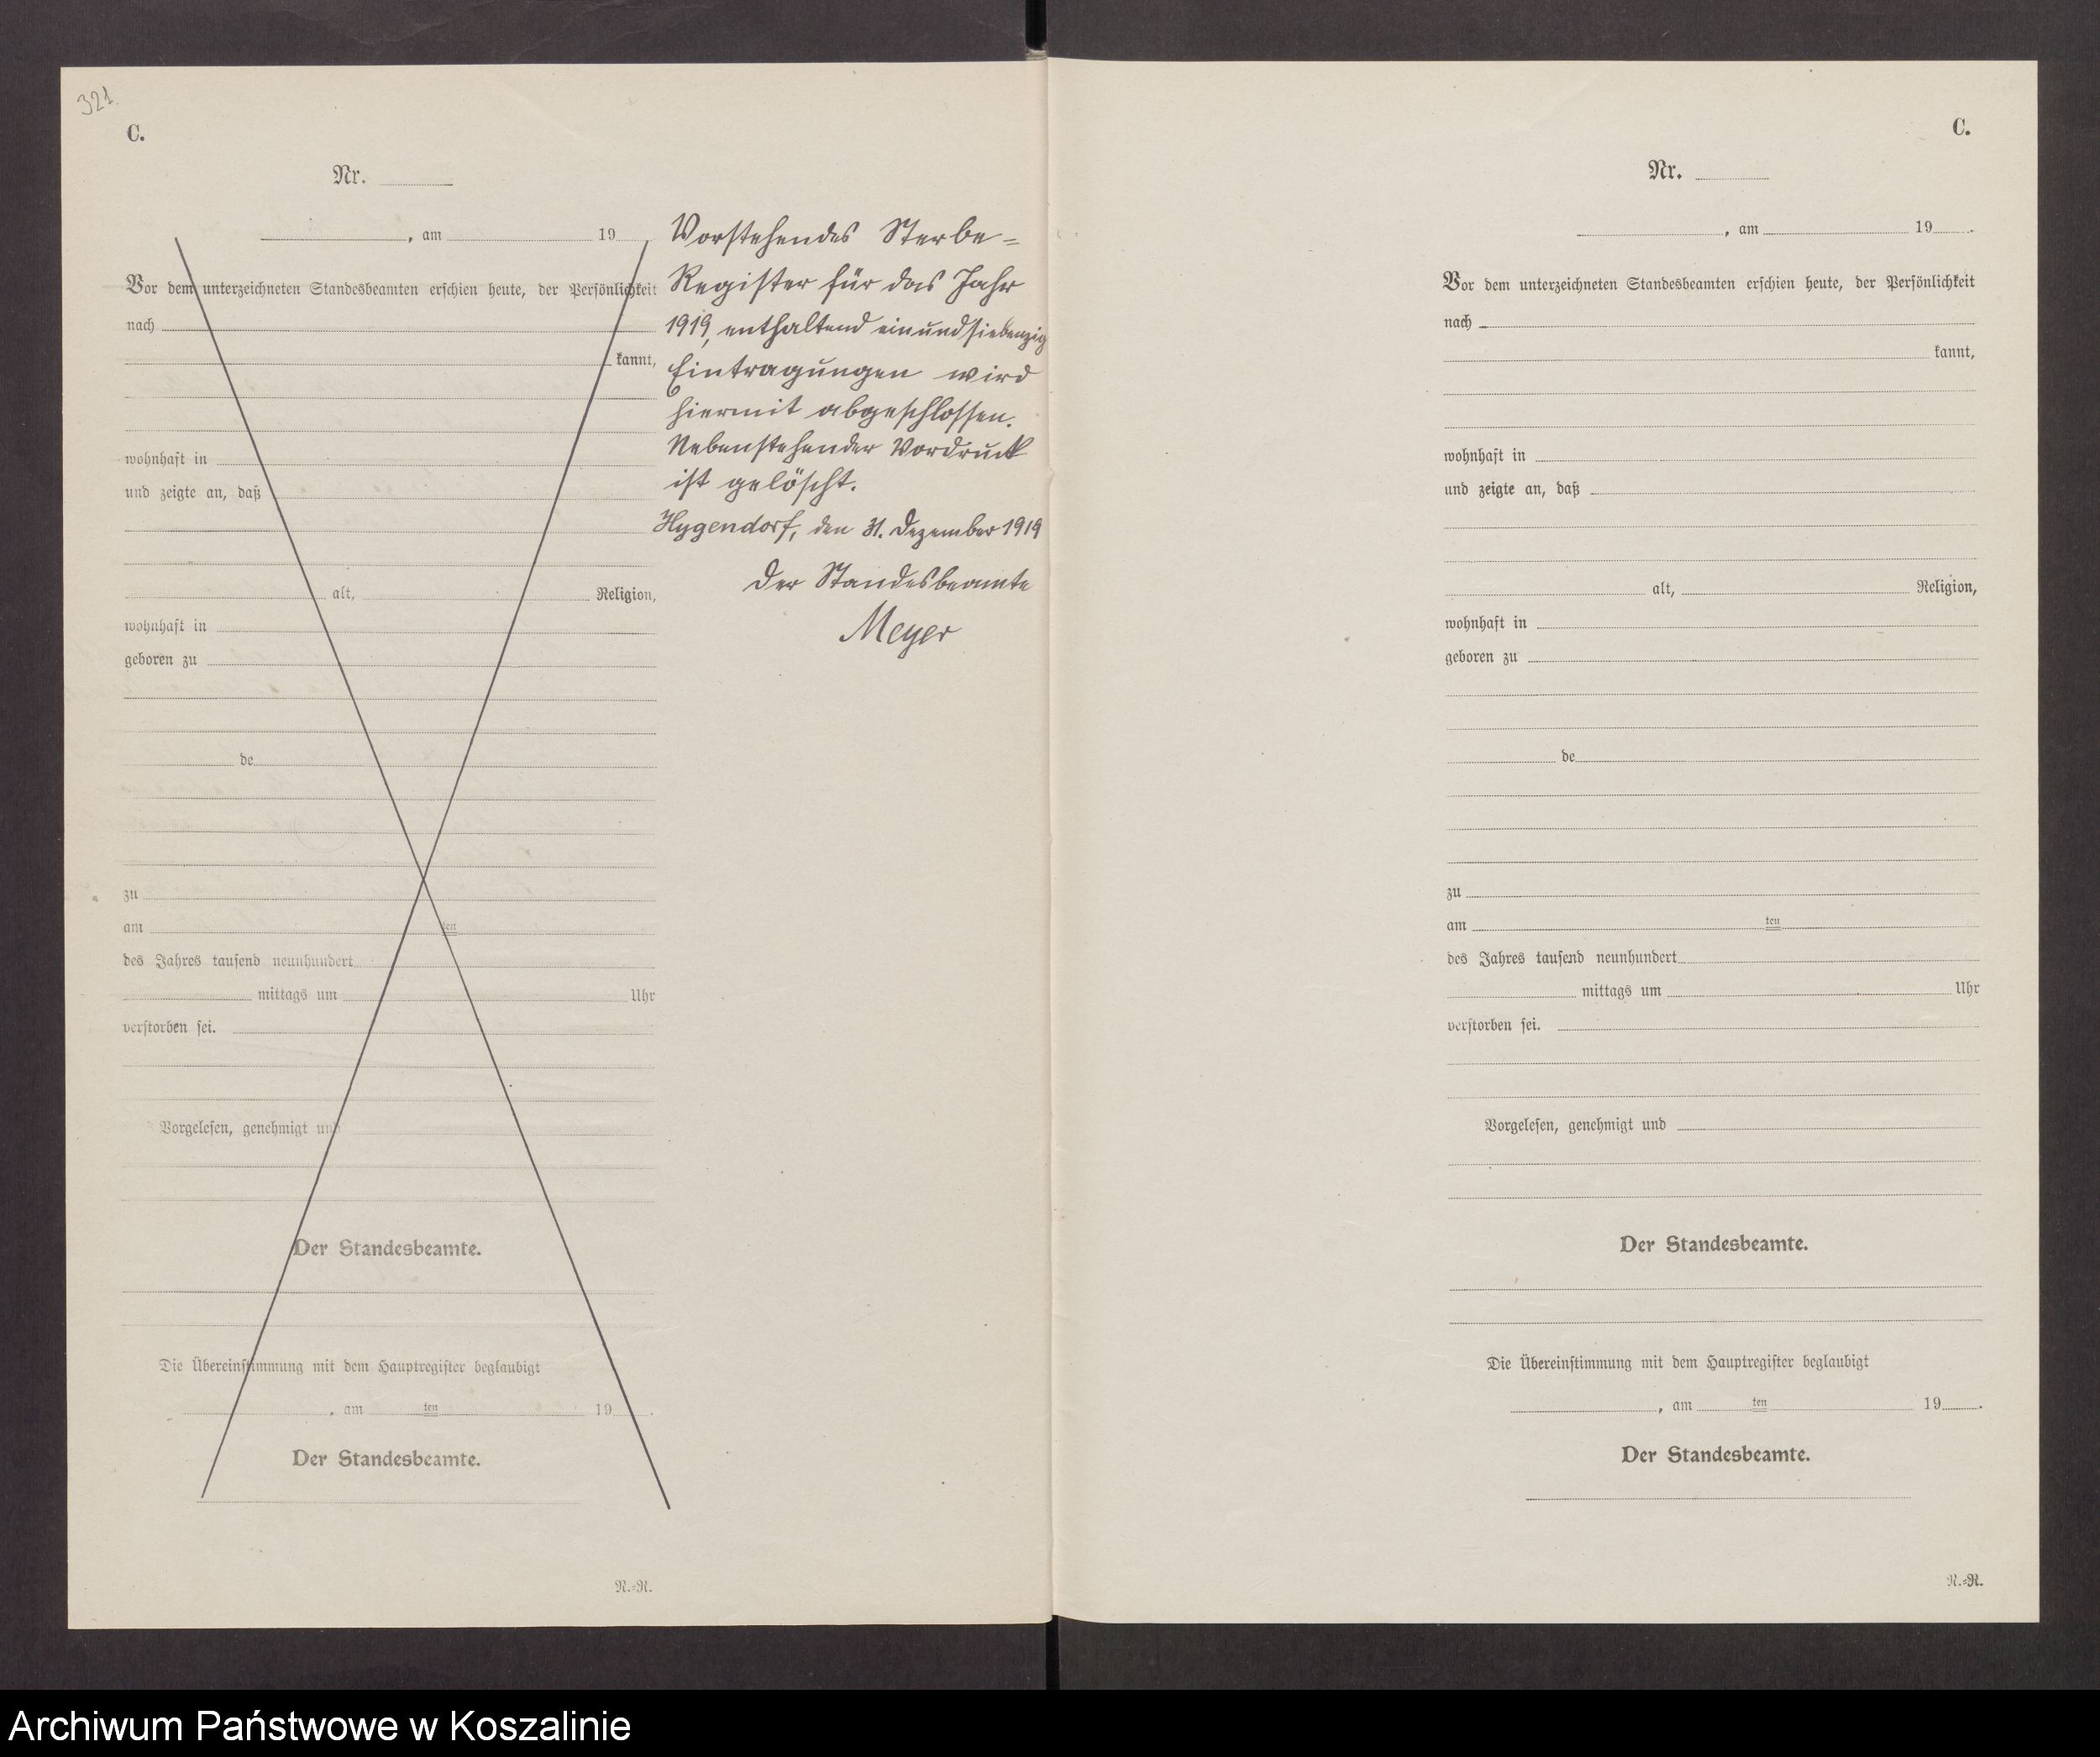 321.
C.
Nr.
, am 19
Vor dem unterzeichneten Standesbeamten erschien heute, der Persönlichkeit
nach
kannt,
wohnhaft in
und zeigte an, daß
alt, Religion,
wohnhaft in
geboren zu
de
zu
am ten
des Jahres tausend neunhundert
mittags um Uhr
verstorben sei.
Vorgelesen, genehmigt und
Der Standesbeamte.
Die Übereinstimmung mit dem Hauptregister beglaubigt
, am ten 19 .
Der Standesbeamte.
R.=R.
Vorstehendes Sterbe=
Register für das Jahr
1919, enthaltend einundsiebenzig
Eintragungen wird
hiermit abgeschlossen.
Nebenstehender Vordruck
ist gelöscht.
Hygendorf, den 31. Dezember 1919
Der Standesbeamte
Meyer
C.
Nr.
, am 19 .
Vor dem unterzeichneten Standesbeamten erschien heute, der Persönlichkeit
nach
kannt,
wohnhaft in
und zeigte an, daß
alt, Religion,
wohnhaft in
geboren zu
de
zu
am ten
des Jahres tausend neunhundert
mittags um Uhr
verstorben sei.
Vorgelesen, genehmigt und
Der Standesbeamte.
Die Übereinstimmung mit dem Hauptregister beglaubigt
, am ten 19 .
Der Standesbeamte.
R.=R.
Archiwum Państwowe w Koszalinie